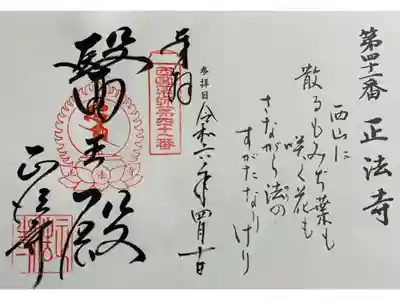 第四十一番 正法寺
西山に
散るもみぢ葉も
咲く花も
さながら法の
すがたなりけり
参拝日 令和六年四月十日
奉拝
西国薬師第四十一番
醫王殿
正法寺